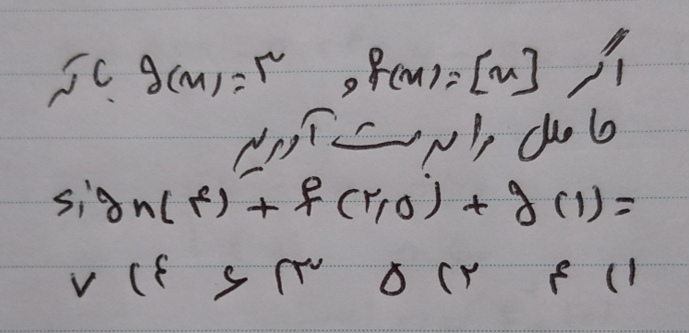 اگر f(x)=[x] و g(x)=۳ باشد
حاصل را بدست آورید
sign(۴) + f(۲,۵) + g(۱) =
۱) ۴ ۲) ۵ ۳) ۶ ۴) ۷